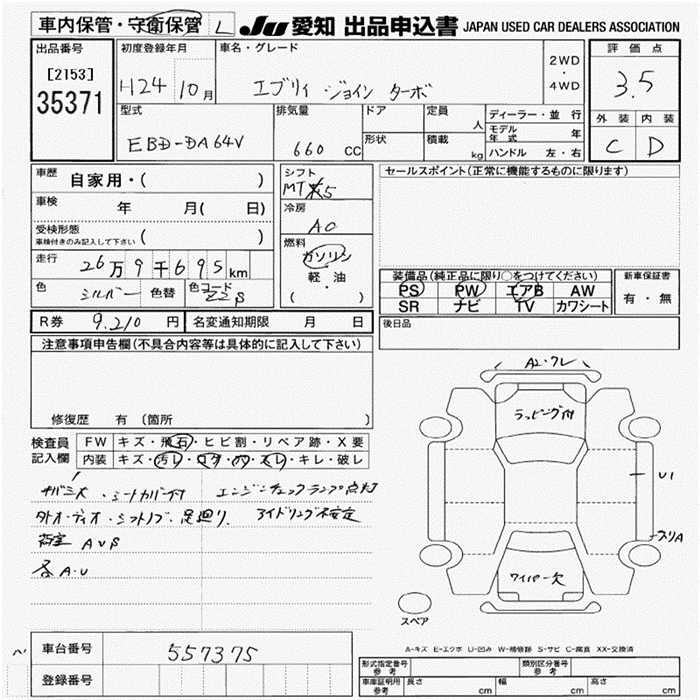 車内保管・守衛保管 L JU 愛知 出品申込書 JAPAN USED CAR DEALERS ASSOCIATION
出品番号 初度登録年月 車名・グレード 2WD・4WD 評価点
[2153] H24 10月 エブリィ ジョイン ターボ 3.5
35371
型式 排気量 ドア 定員 人 ディーラー・並行 外装 内装
EBD-DA64V 660 CC 形状 積載 kg モデル年式 年 C D
ハンドル 左・右
車歴 自家用・( ) シフト セールスポイント(正常に機能するものに限ります)
MT 5
車検 年 月( 日) 冷房
AC
受検形態 ( )
車検付きのみ記入して下さい
燃料
走行 26万9千695km ガソリン
軽・油
( )
装備品(純正品に限り○をつけてください) 新車保証書
色 シルバー 色替 色コード Z2S PS PW エアB AW 有・無
SR ナビ TV カワシート
R券 9.210 円 名変通知期限 月 日 後日品
注意事項申告欄(不具合内容等は具体的に記入して下さい)
修復歴 有 (箇所 )
検査員記入欄 FW キズ・飛石・ヒビ割・リペア跡・X要
内装 キズ・汚レ・コゲ・穴・スレ・キレ・破レ
サバミス・シートカバー付 エンジンチェックランプ点灯
外オーディオ・シフトノブ・足廻り. アイドリング不安定
荷室 AUS
各A.U
A2・ワレ
ラッピング付
U1
ズリA
ワイパー欠
スペア
A-キズ E-エクボ U-凹み W-補修跡 S-サビ C-腐食 XX-交換済
車台番号 557375
登録番号
形式指定番号 参考 類別区分番号 参考
車庫証明用 参考 長さ cm 幅 cm 高さ cm